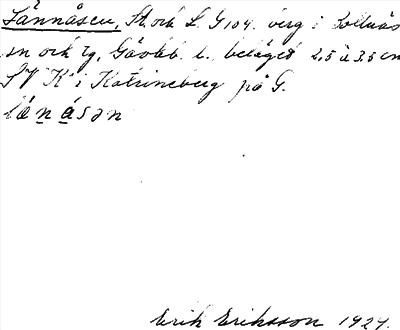 Lännåsen, St. och L. G 104. berg i Bollnäs
sn och tg, Gävleb. l., beläget 2,5 à 3,5 cm
SV "K" i Katrineberg på G.
lä́n̲á̲sən
Erik Eriksson 1924.